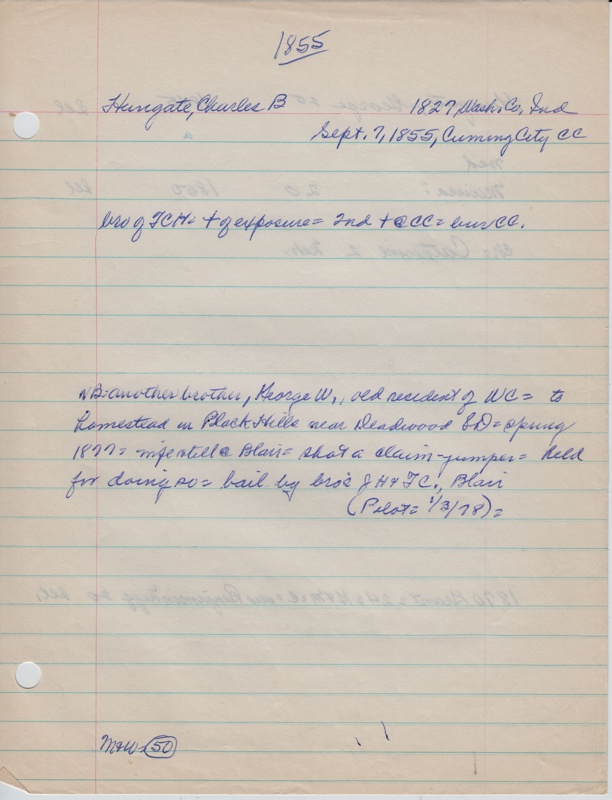 1855
Hungate, Charles B 1827, Wash. Co, Ind
Sept. 7, 1855, Cuming City CC
bro of TCH= + of exposure= 2nd + @ CC= bur CC.
NB=another brother, George W., old resident of WC= to
homestead in Black Hills near Deadwood SD= spring
1877= wife still @ Blair= shot a claim-jumper= held
for doing so= bail by bro's JH & TC., Blair
(Pilot= 1/3/78)=
M&W= 50